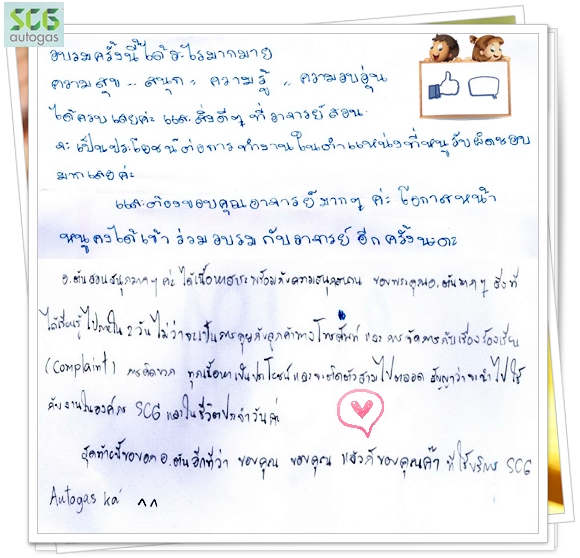 SCG
autogas
อบรมครั้งนี้ได้อะไรมากมาย
ความสุข .. สนุก .. ความรู้ .. ความอบอุ่น
ได้ครบเลยค่ะ และสิ่งดีๆ ที่อาจารย์สอน
จะเป็นประโยชน์ต่อการทำงานในตำแหน่งที่หนูรับผิดชอบ
มากเลยค่ะ
และต้องขอบคุณอาจารย์มากๆ ค่ะ โอกาสหน้า
หนูคงได้เข้าร่วมอบรมกับอาจารย์อีกครั้งนะคะ
อ.ต้นสอนสนุกมากๆ ค่ะ ได้เนื้อหาสาระพร้อมกับความสนุกสนาน ขอบพระคุณอ.ต้นมากๆ สิ่งที่
ได้เรียนรู้ไปภายใน 2 วัน ไม่ว่าจะเป็นการคุยกับลูกค้าทางโทรศัพท์ และ การจัดการกับเรื่องร้องเรียน
(Complaint) การคิดบวก ทุกเนื้อหาเป็นประโยชน์และจะติดตัวสามไปตลอด สัญญาว่าจะนำไปใช้
กับงานในองค์กร SCG และในชีวิตประจำวันค่ะ
สุดท้ายนี้ขอบอก อ.ต้นอีกทีว่า ขอบคุณ ขอบคุณ แล้วก็ขอบคุณค๊า ที่ใช้บริการ SCG
Autogas ka' ^^